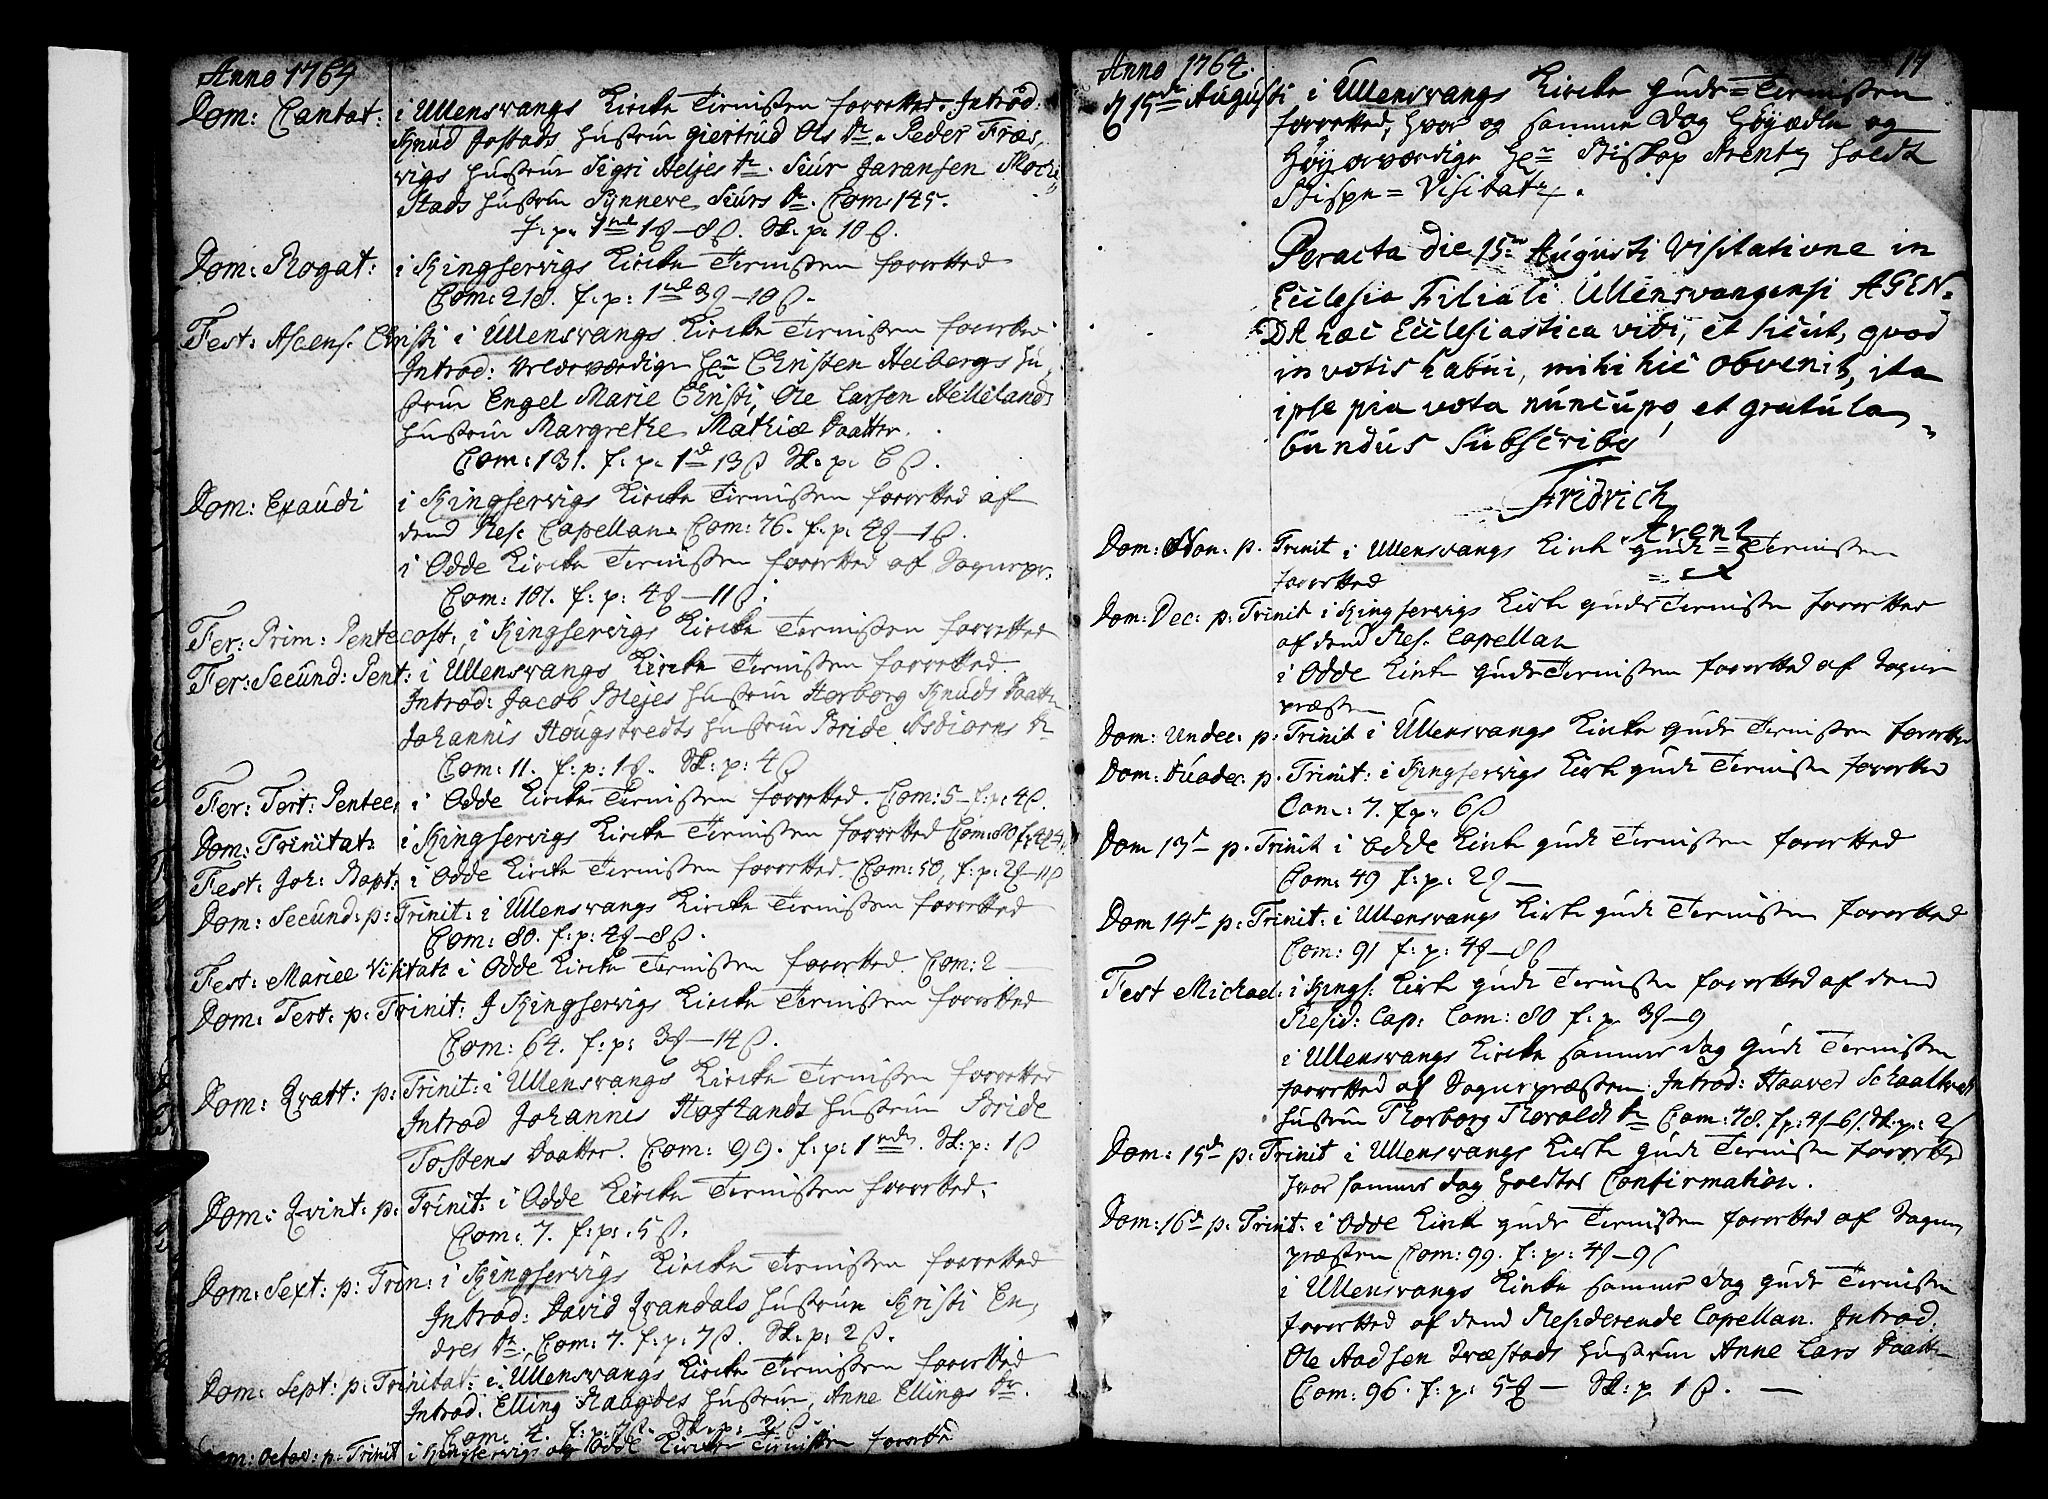 Anno 1764
Dom: Cantat: i Ullensvangs Kircke Tienisten forretted. Introd:
Knud Jostads hustrue giertrud Ols Dr. Peder Fræs,
vigs hustrue Sigri Heljes Dr. Siur Jaransen
Stads hustrue Synneve Siurs Dr. Com: 145.
f: p: 1 rd 1 ℔ – 8 β. Sk: p: 10 β.
Dom: Rogat: i Kingservigs Kircke Tienisten forretted
Com: 218. f: p: 1 rd 3 ℔ – 10 β.
Fest: Ascens: Christi i Ullensvangs Kircke Tienisten forretted
Introd: Velærværdige Hr Christen Heibergs hu,
strue Engel Marie Christi, Ole Larsen Hellelands
hustrue Margrethe Mathiæ Daatter.
Com: 131. f: p: 1 rd 13 β Sk: p: 6 β.
Dom: Exaudi i Kingservigs Kircke Tienisten forretted af
dend Res: Capellan. Com: 76. f: p: 4 ℔ – 1 β.
i Odde Kircke Tienisten forretted af Sognepr:
Com: 101. f: p: 4 ℔ – 11 β.
Fer: Prim: Pentecost: i Kingservigs Kircke Tienisten forretted
Fer: Secund: Pent: i Ullensvangs Kircke Tienisten forretted.
Introd: Jacob Blejes hustrue Herborg Knuds Daatter
Johannis Hougstvedts hustrue Bride Asbiorns Dr
Com: 11. f: p: 1 ℔. Sk: p: 4 β
Fer: Tert: Pentec: i Odde Kircke Tienisten forretted. Com: 5 – f: p: 4 β.
Dom: Trinitat: i Kingservigs Kircke Tienisten forretted Com: 80
Fest: Joh: Bapt: i Odde Kircke Tienisten forretted. Com: 50, f: p: 2 ℔ – 11 β
Dom: Secund: p: Trinit: i Ullensvangs Kircke Tienisten forretted
Com: 80. f: p: 4 ℔ – 8 β.
Fest: Mariæ Visitat: i Odde Kircke Tienisten forretted. Com: 2 –
Dom: Tert: p: Trinit: I Kingservigs Kircke Tienisten forretted
Com: 64. f: p: 3 ℔ – 14 β.
Dom: Qvart: p: Trinit: i Ullensvangs Kircke Tienisten forretted
Introd Johannis Hoflands hustrue Bride
Tostens Daatter. Com: 99. f: p: 1 rdr. Sk: p: 1 β
Dom: Qvint: p: Trinit: i Odde Kircke Tienisten forretted.
Com: 7. f: p: 5 β.
Dom: Sext: p: Trin: i Kingservigs Kircke Tienisten forretted
Introd: David Qvandals hustrue Kristi En,
dres Dr. Com: 7. f: p: 7 β. Sk: p: 2 β.
Dom: Sept: p: Trinitat: i Ullensvangs Kircke Tienisten forretted
Introd: Elling Haugdes hustrue Anne Ellings Dr.
Com: 4. f: p: 7 β. Sk: p: 2 β.
Dom: Octav: p: Trinit i Kingservigs og Odde Kircker Tienisten forrette
Anno 1764.
d 15de Augusti i Ullensvangs Kircke Guds=Tienisten
forretted, hvor og samme Dag Høyædle og
Høyærværdige Hr Biskop Arentz holdt
Bispe=Visitatz.
Peracta die 15ta Augusti Visitatione in
Ecclesia Filiali Ullensvangensi AGEN=
DA hæc Ecclesiastica vidi, et sicut, qvod
in votis habui, mihi hic obvenit, ita
ipse pia vota nuncupo, et gratula,
bundus subscribo
Fridrich
Arentz
Dom: Non: p. Trinit i Ullensvangs Kirke guds=Tienisten
forretted
Dom: Dec: p: Trinit i Kingservigs Kirke gudsTienisten forretted
af dend Res. Capellan
i Odde Kirke gudsTienisten forretted af Sogne
præsten
Dom: Undec: p: Trinit i Ullensvangs Kircke guds Tienisten forretted
Dom: Duodec: p. Trinit: i Kingservigs Kirke guds Tienisten forretted
Com: 7. fp: 6 β
Dom 13de p. Trinit i Odde Kirke guds Tienisten forretted
Com: 49 f: p: 2 ℔ –
Dom 14de p: Trinit: i Ullensvangs Kirke guds Tienisten forretted
Com: 91 f: p: 4 ℔ – 8 β
Fest Michael: i Kings: Kirke guds Tienisten forretted af dend
Resid: Cap: Com: 80 f: p. 3 ℔ – 9
i Ullensvangs Kircke sammes dag Guds Tienisten
forretted af Sognepræsten. Introd: Haaver
hustrue Thorborg Thorolds Dr Com: 78.
Dom: 15de p: Trinit i Ullensvangs Kirke guds Tienisten forretted
hvor sammes dag holdtes Confirmation.
Dom: 16de p: Trinit: i Odde Kirke guds Tienisten forretted af Sogne,
præsten Com: 99. f: p: 4 ℔ – 9 β
i Ullensvangs Kircke sammes dag guds Tienisten
forretted af dend Residerende Capellan. Introd:
Ole Aadsen Qvæstads hustrue Anne Lars Daatter
Com: 96. f: p: 5 ℔ – Sk: p 1 β. –